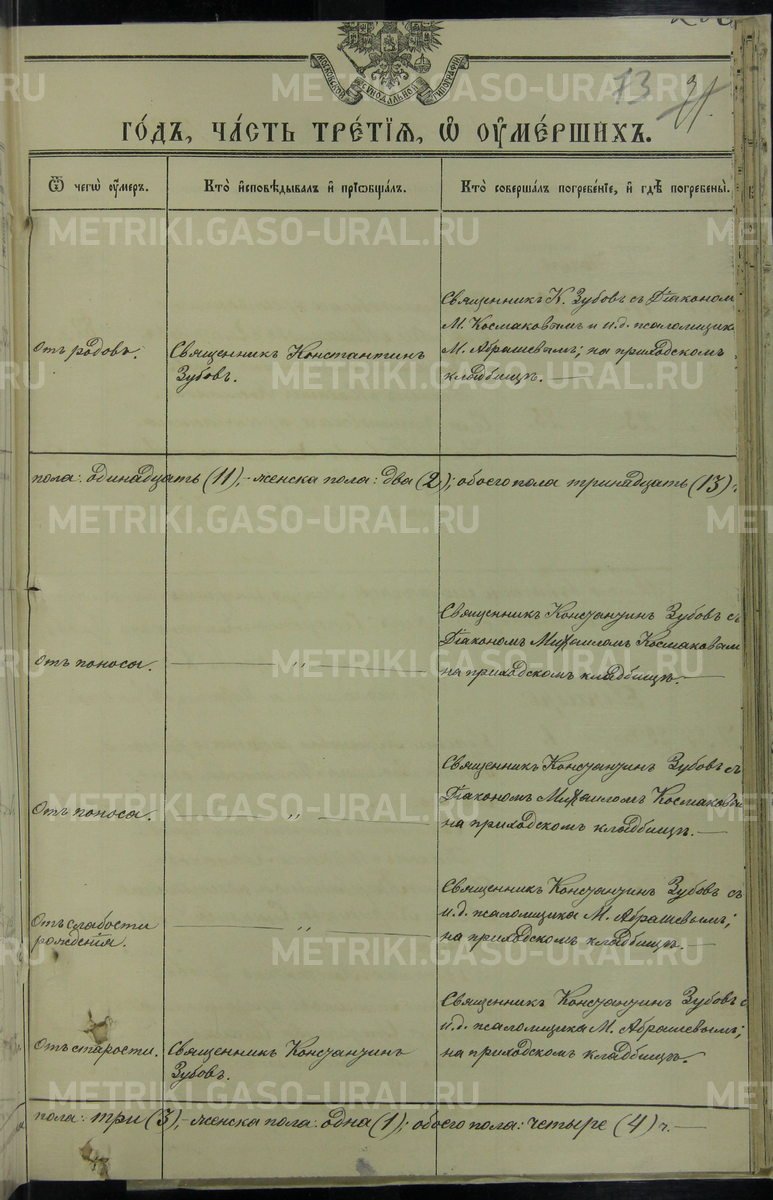 МОСКОВСКОЙ СѴНОДАЛЬНОЙ ТИПОГРАФІИ
73
ГО́ДЪ, ЧА́СТЬ ТРЕ́ТІѦ, Ѡ҆ ОУ҆МЕ́РШИХЪ.
Ѿ чегѡ̀ оу҆́меръ.
Кто̀ и҆сповѣ́дывалъ и҆ прїѡбща́лъ.
Кто̀ соверша́лъ погребе́нїе, и҆ гдѣ̀ погребены̀.
Отъ родовъ.
Священникъ Константинъ
Зубовъ.
Священникъ К. Зубовъ съ Діаконом
М. Космаковымъ и и.д. псаломщик
М. Абрашевымъ; на приходскомъ
кладбищѣ. —
пола: одинадцать (11), - женска пола: два (2); обоего пола тринадцать (13) ч.
Отъ поноса.
— „ —
Священникъ Константинъ Зубовъ съ
Діакономъ Михаиломъ Космаковым
на приходскомъ кладбищѣ. —
Отъ поноса.
— „ —
Священникъ Константинъ Зубовъ съ
Діакономъ Михаиломъ Космаковы
на приходскомъ кладбищѣ. —
Отъ слабости
рожденія.
— „ —
Священникъ Константинъ Зубовъ съ
и.д. псаломщика М. Абрашевымъ;
на приходскомъ кладбищѣ. —
Отъ старости.
Священникъ Константинъ
Зубовъ.
Священникъ Константинъ Зубовъ с
и.д. псаломщика М. Абрашевымъ;
на приходскомъ кладбищѣ.
пола: три (3), - женска пола: одна (1); обоего пола: четыре (4) ч. —
METRIKI.GASO-URAL.RU